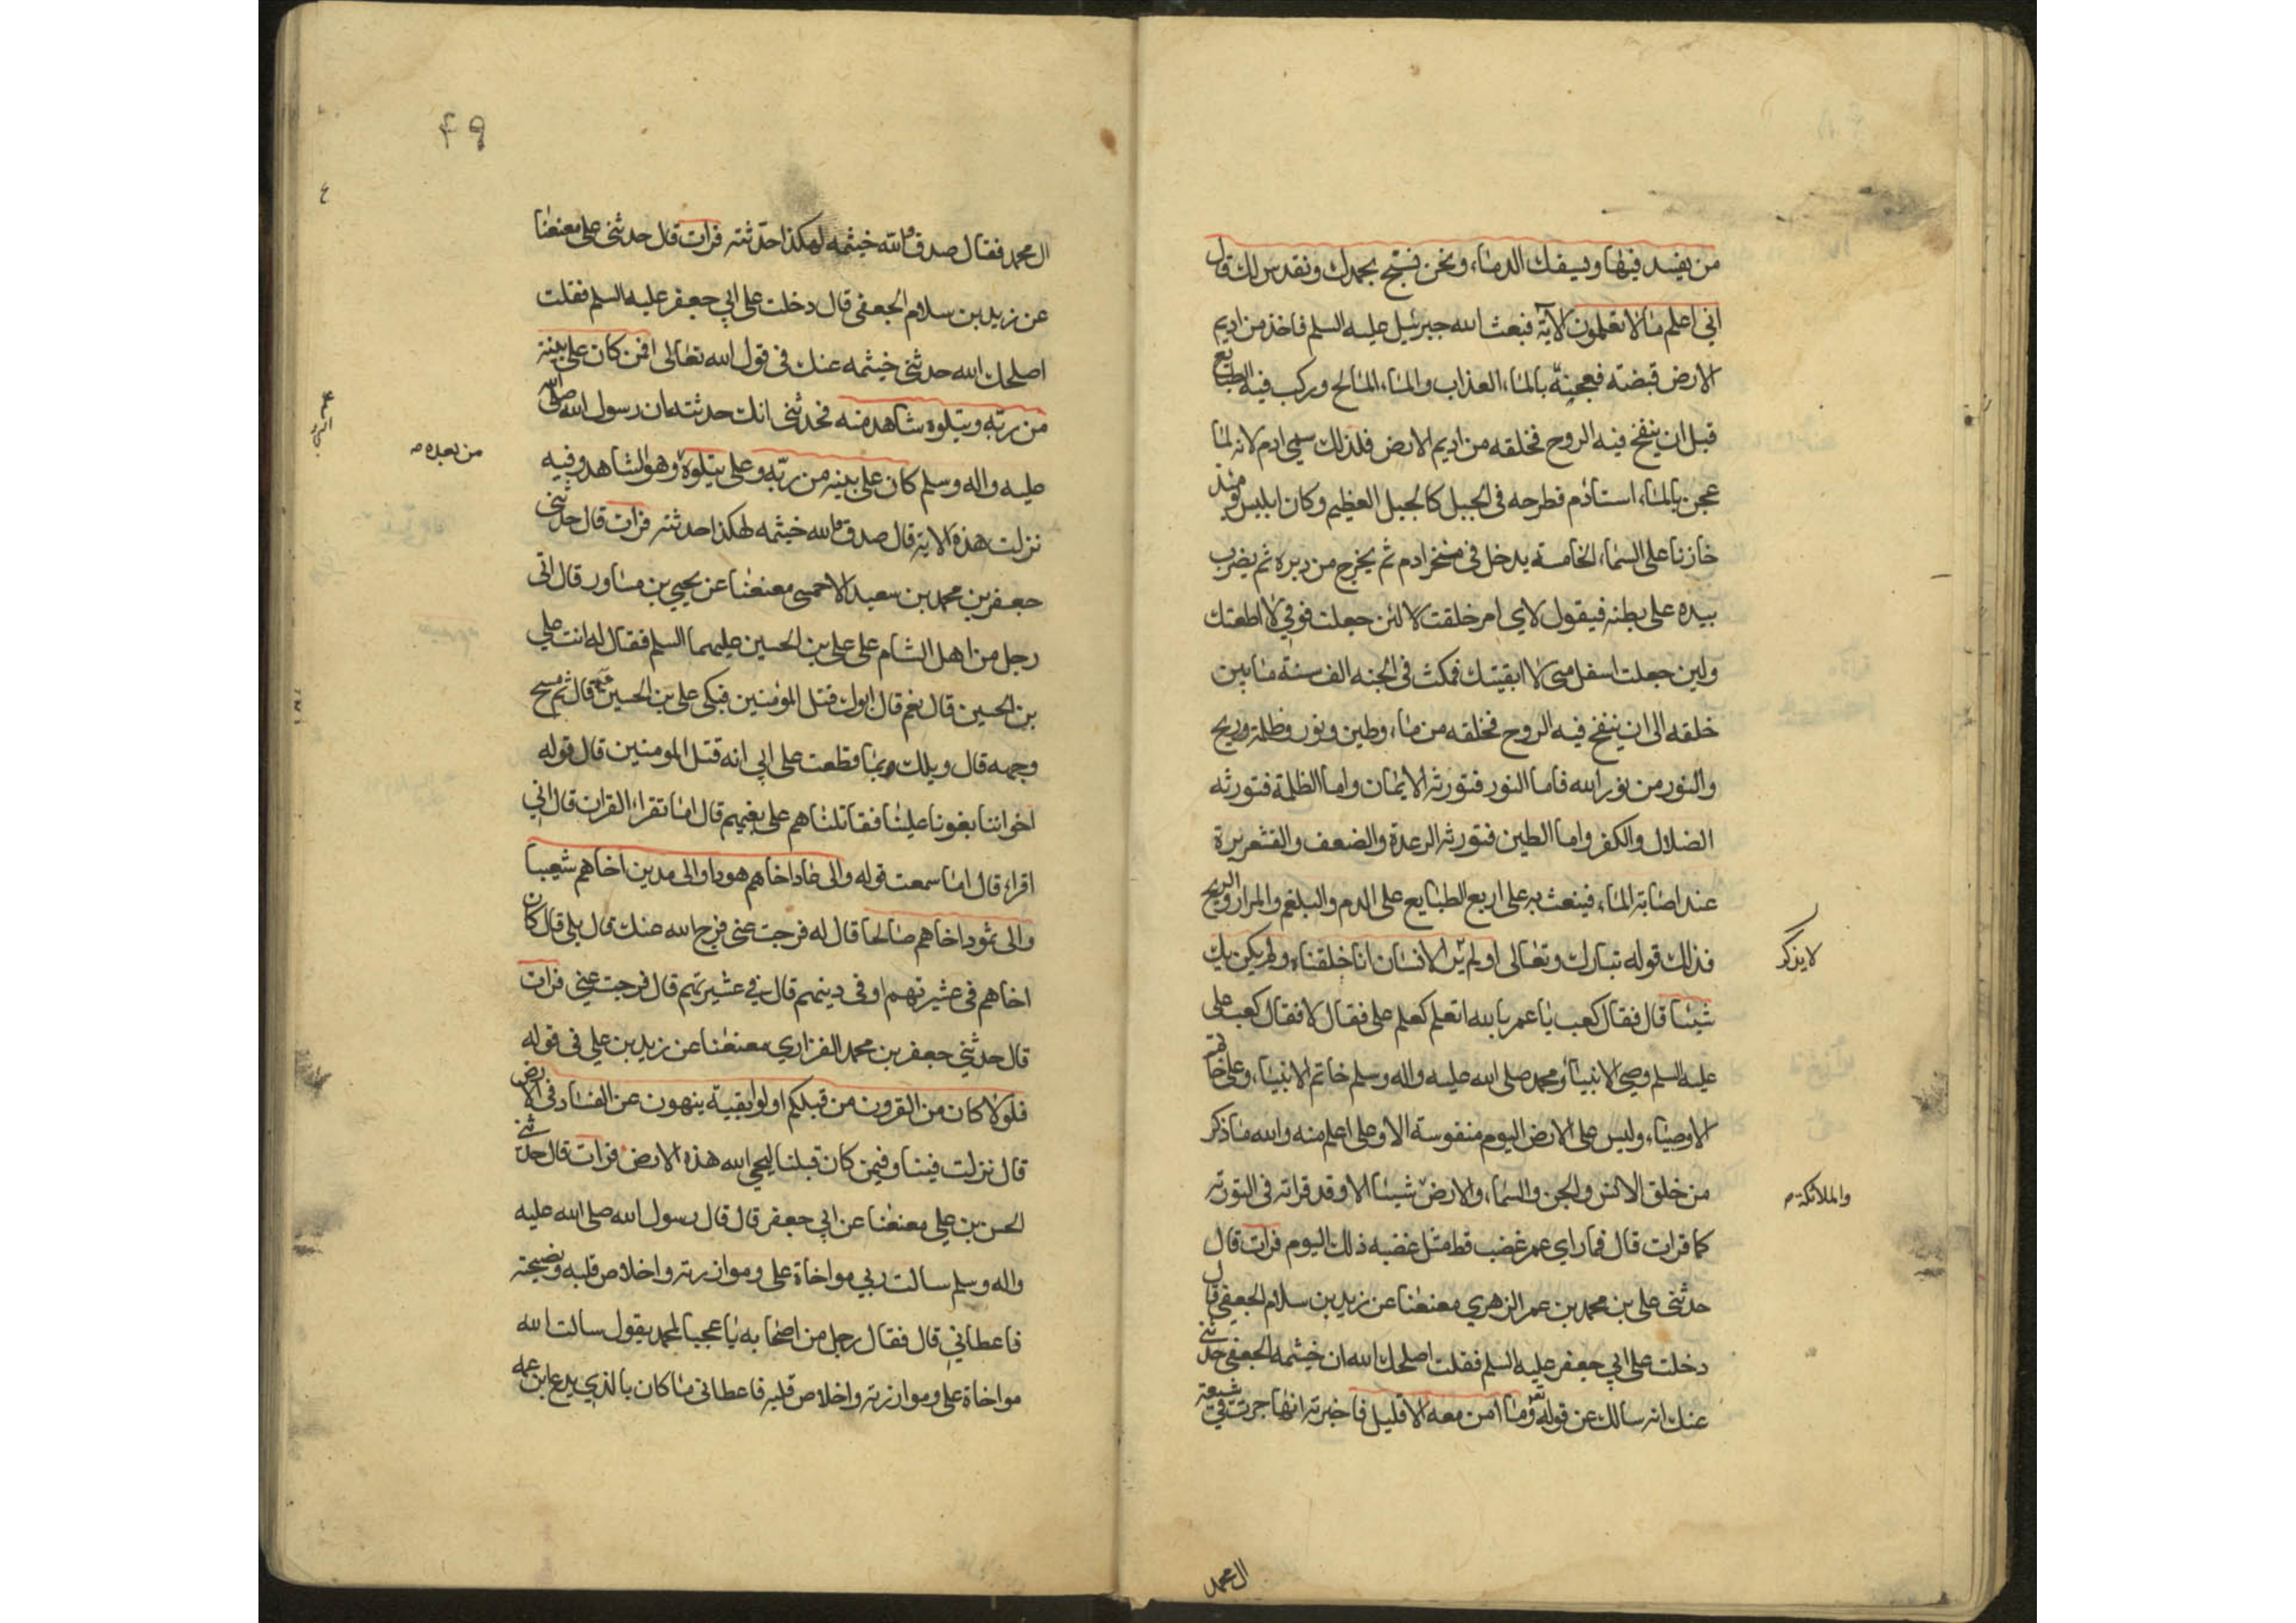 من يفسد فيها ويسفك الدماء ونحن نسبح بحمدك ونقدس لك قال
اني اعلم ما لا تعلمون الآية فبعث الله جبرئيل عليه السلم فاخذ من اديم
الارض قبضته فعجنه بالماء العذاب والماء المالح وركب فيه الطبايع
قبل ان ينفخ فيه الروح فخلقه من اديم الارض فلذلك سمي ادم لانه لما
عجن بالماء استادم فطرحه في الجبل كالجبل العظيم وكان ابليس يومئذ
خازنا على السماء الخامسة يدخل في منخر ادم ثم يخرج من دبره ثم يضرب
بيده على بطنه فيقول لاي امر خلقت لا لئن جعلت فوقي لا اطعتك
ولين جعلت اسفل مني لا ابقيتك فمكث في الجنه الف سنة ما بين
خلقه الى ان ينفخ فيه الروح فخلقه من ماء وطين ونور وظلمة وريح
والنور من نور الله فاما النور فتورثه الايمان واما الظلمة فتورثه
الضلال والكفر واما الطين فتورثه الرعدة والضعف والقشعريرة
عند اصابة الماء فينعث به على اربع الطبايع على الدم والبلغم والمرار والريح
فذلك قوله تبارك وتعالى اولم ير الانسان انا خلقناه ولم يكن يك
لا يذكر
شيئا قال فقال كعب يا عمر بالله اتعلم كعلم علي فقال لا فقال كعب علي
عليه السلم وصي الانبياء ومحمد صلى الله عليه واله وسلم خاتم الانبياء وعلي خاتم
الاوصياء وليس على الارض اليوم منفوسة الا وعلي اعلم منه والله ما ذكر
من خلق الانس والجن والسماء والارض شيئا الا وقد قراته في التورته
والملائكة
كما قرات قال فما راي عمر غضب قط مثل غضبه ذلك اليوم فرات قال
حدثني علي بن محمد بن عمر الزهري معنعنا عن زيد بن سلام الجعفي قال
دخلت على ابي جعفر عليه السلم فقلت اصلحك الله ان خيثمه الجعفي حدثني
عنك انه سالك عن قوله تع وما امن معه الا قليل فاخبرته انها جرت في شيعة
ال محمد
٤٩
ال محمد فقال صدق والله خيثمه لهكذا حدثته فرات قال حدثني علي معنعنا
عن زيد بن سلام الجعفي قال دخلت على ابي جعفر عليه السلم فقلت
اصلحك الله حدثني خيثمه عنك في قول الله تعالى افمن كان على بينة
من ربه ويتلوه شاهد منه فحدثني انك حدثته ان رسول الله صلى الله
عليه واله وسلم كان على بينه من ربه وعلي يتلوه وهو الشاهد وفيه
من بعده
نزلت هذه الاية قال صدق والله خيثمه لهكذا حدثته فرات قال حدثني
جعفر بن محمد بن سعيد الاحمسي معنعنا عن يحيى بن مساور قال اتى
رجل من اهل الشام على علي بن الحسين عليهما السلم فقال له انت علي
بن الحسين قال نعم قال ابوك قتل المؤمنين فبكى علي بن الحسين قال ثم مسح
وجهه قال ويلك وبما قطعت على ابي انه قتل المومنين قال قوله
اخواننا بغونا علينا فقاتلناهم على بغيهم قال اما تقراء القران قال اني
اقراء قال اما سمعت قوله والى عاد اخاهم هودا والى مدين اخاهم شعيبا
والى ثمود اخاهم صالحا قال له فرجت عني فرج الله عنك قال بلى قال كان
اخاهم في عشيرتهم او في دينهم قال في عشيرتهم قال فرجت عني فرات
قال حدثني جعفر بن محمد الفزاري معنعنا عن زيد بن علي في قوله
فلولا كان من القرون من قبلكم اولوا بقية ينهون عن الفساد في الارض
قال نزلت فينا وفيمن كان قبلنا ليحي الله هذه الارض فرات قال حدثني
الحسن بن علي معنعنا عن ابي جعفر قال قال رسول الله صلى الله عليه
واله وسلم سالت ربي مواخاة علي وموازرته واخلاص قلبه ونصيحته
فاعطاني قال فقال رجل من اصحابه يا عجبا لمحمد يقول سالت الله
مواخاة علي وموازرته واخلاص قلبه فاعطاني ما كان بالذي يدع ابن عمه